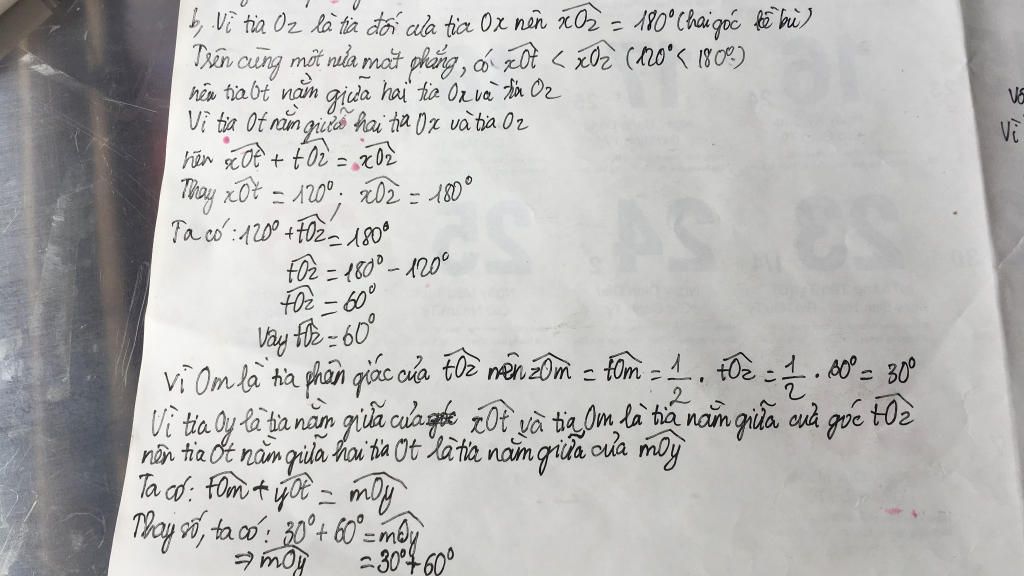 b, Vì tia Oz là tia đối của tia Ox nên xOz = 180° (hai góc kề bù)
Trên cùng một nửa mặt phẳng, có xOt < xOz (120° < 180°)
nên tia Ot nằm giữa hai tia Ox và tia Oz
Vì tia Ot nằm giữa hai tia Ox và tia Oz
nên xOt + tOz = xOz
Thay xOt = 120°; xOz = 180°
Ta có: 120° + tOz = 180°
tOz = 180° - 120°
tOz = 60°
Vậy tOz = 60°
Vì Om là tia phân giác của tOz nên zOm = tOm = 1/2 . tOz = 1/2 . 60° = 30°
Vì tia Oy là tia nằm giữa của góc xOt và tia Om là tia nằm giữa của góc tOz
nên tia Ot nằm giữa hai tia Ot là tia nằm giữa của mOy
Ta có: tOm + yOt = mOy
Thay số, ta có: 30° + 60° = mOy
⇒ mOy = 30° + 60°
16 17
23 24 25
Vì